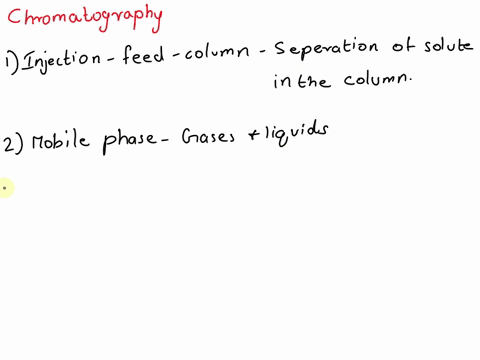 Chromatography
1) Injection - feed - column - Seperation of solute
in the column.
2) Mobile phase - Gases + liquids